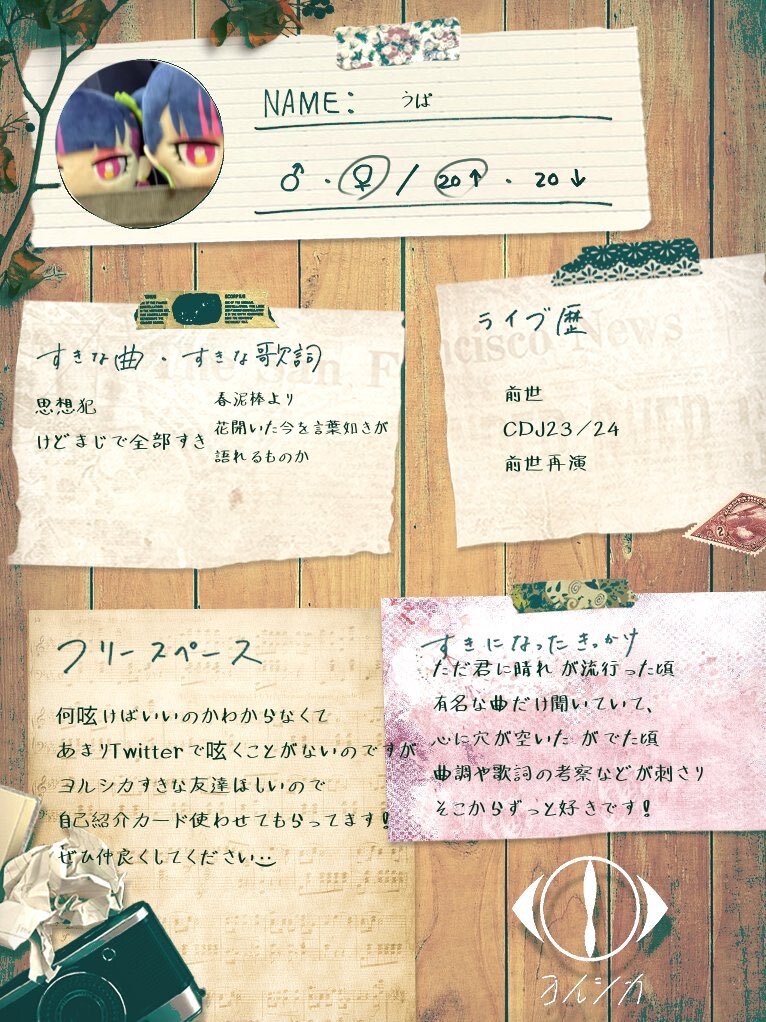 NAME: うぱ
♂・♀ / 20↑・20↓
すきな曲・すきな歌詞
思想犯
けどまじで全部すき
春泥棒より
花開いた今を言葉如きが
語れるものか
ライブ歴
前世
CDJ23/24
前世再演
フリースペース
何呟けばいいのかわからなくて
あまりTwitterで呟くことがないのですが
ヨルシカすきな友達ほしいので
自己紹介カード使わせてもらってます!
ぜひ仲良くしてください
すきになったきっかけ
ただ君に晴れ が流行った頃
有名な曲だけ聞いていて、
心に穴が空いた がでた頃
曲調や歌詞の考察などが刺さり
そこからずっと好きです!
ヨルシカ